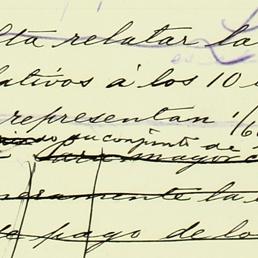 lta relatar la
lativos á los 10
representan 1/6
su conjunto de
para mayor
neramente la
de pago de los